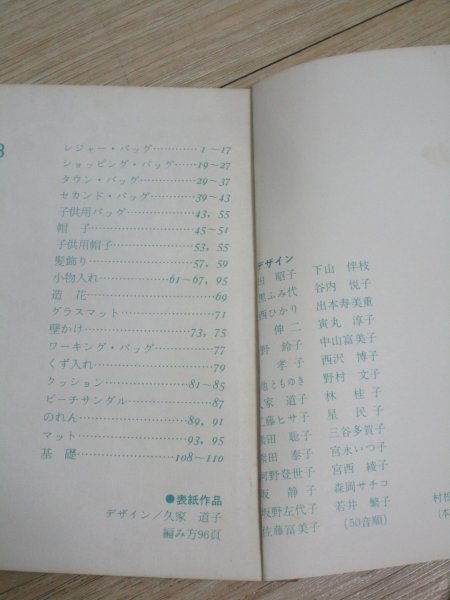 8
レジャー・バッグ……………1～17
ショッピング・バッグ………19～27
タウン・バッグ………………29～37
セカンド・バッグ……………39～43
子供用バッグ…………………43, 55
帽　子…………………………45～51
子供用帽子……………………53, 55
髪飾り…………………………57, 59
小物入れ………………61～67, 95
造　花…………………………69
グラスマット…………………71
壁かけ…………………………73, 75
ワーキング・バッグ…………77
くず入れ………………………79
クッション……………………81～85
ビーチサンダル………………87
のれん…………………………89, 91
マット…………………………93, 95
基　礎…………………………108～110
●表紙作品
デザイン／久家　道子
編み方96頁
デザイン
田　昭子　下山　伴枝
黒ふみ代　谷内　悦子
西ひかり　出本寿美重
伸二　寅丸　淳子
野　鈴子　中山富美子
孝子　西沢　博子
池ともゆき　野村　文子
久家　道子　林　桂子
工藤ヒサ子　星　民子
柴田　聡子　三谷多賀子
柴田　泰子　宮永いつ子
河野登世子　宮西　綾子
坂　静子　森岡サチコ
坂野左代子　若井　繁子
佐藤富美子　(50音順)
村松
(本